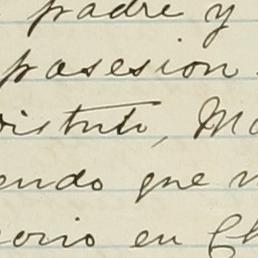 padre y
posesion
distrito, Ma
endo que
orio en Ch